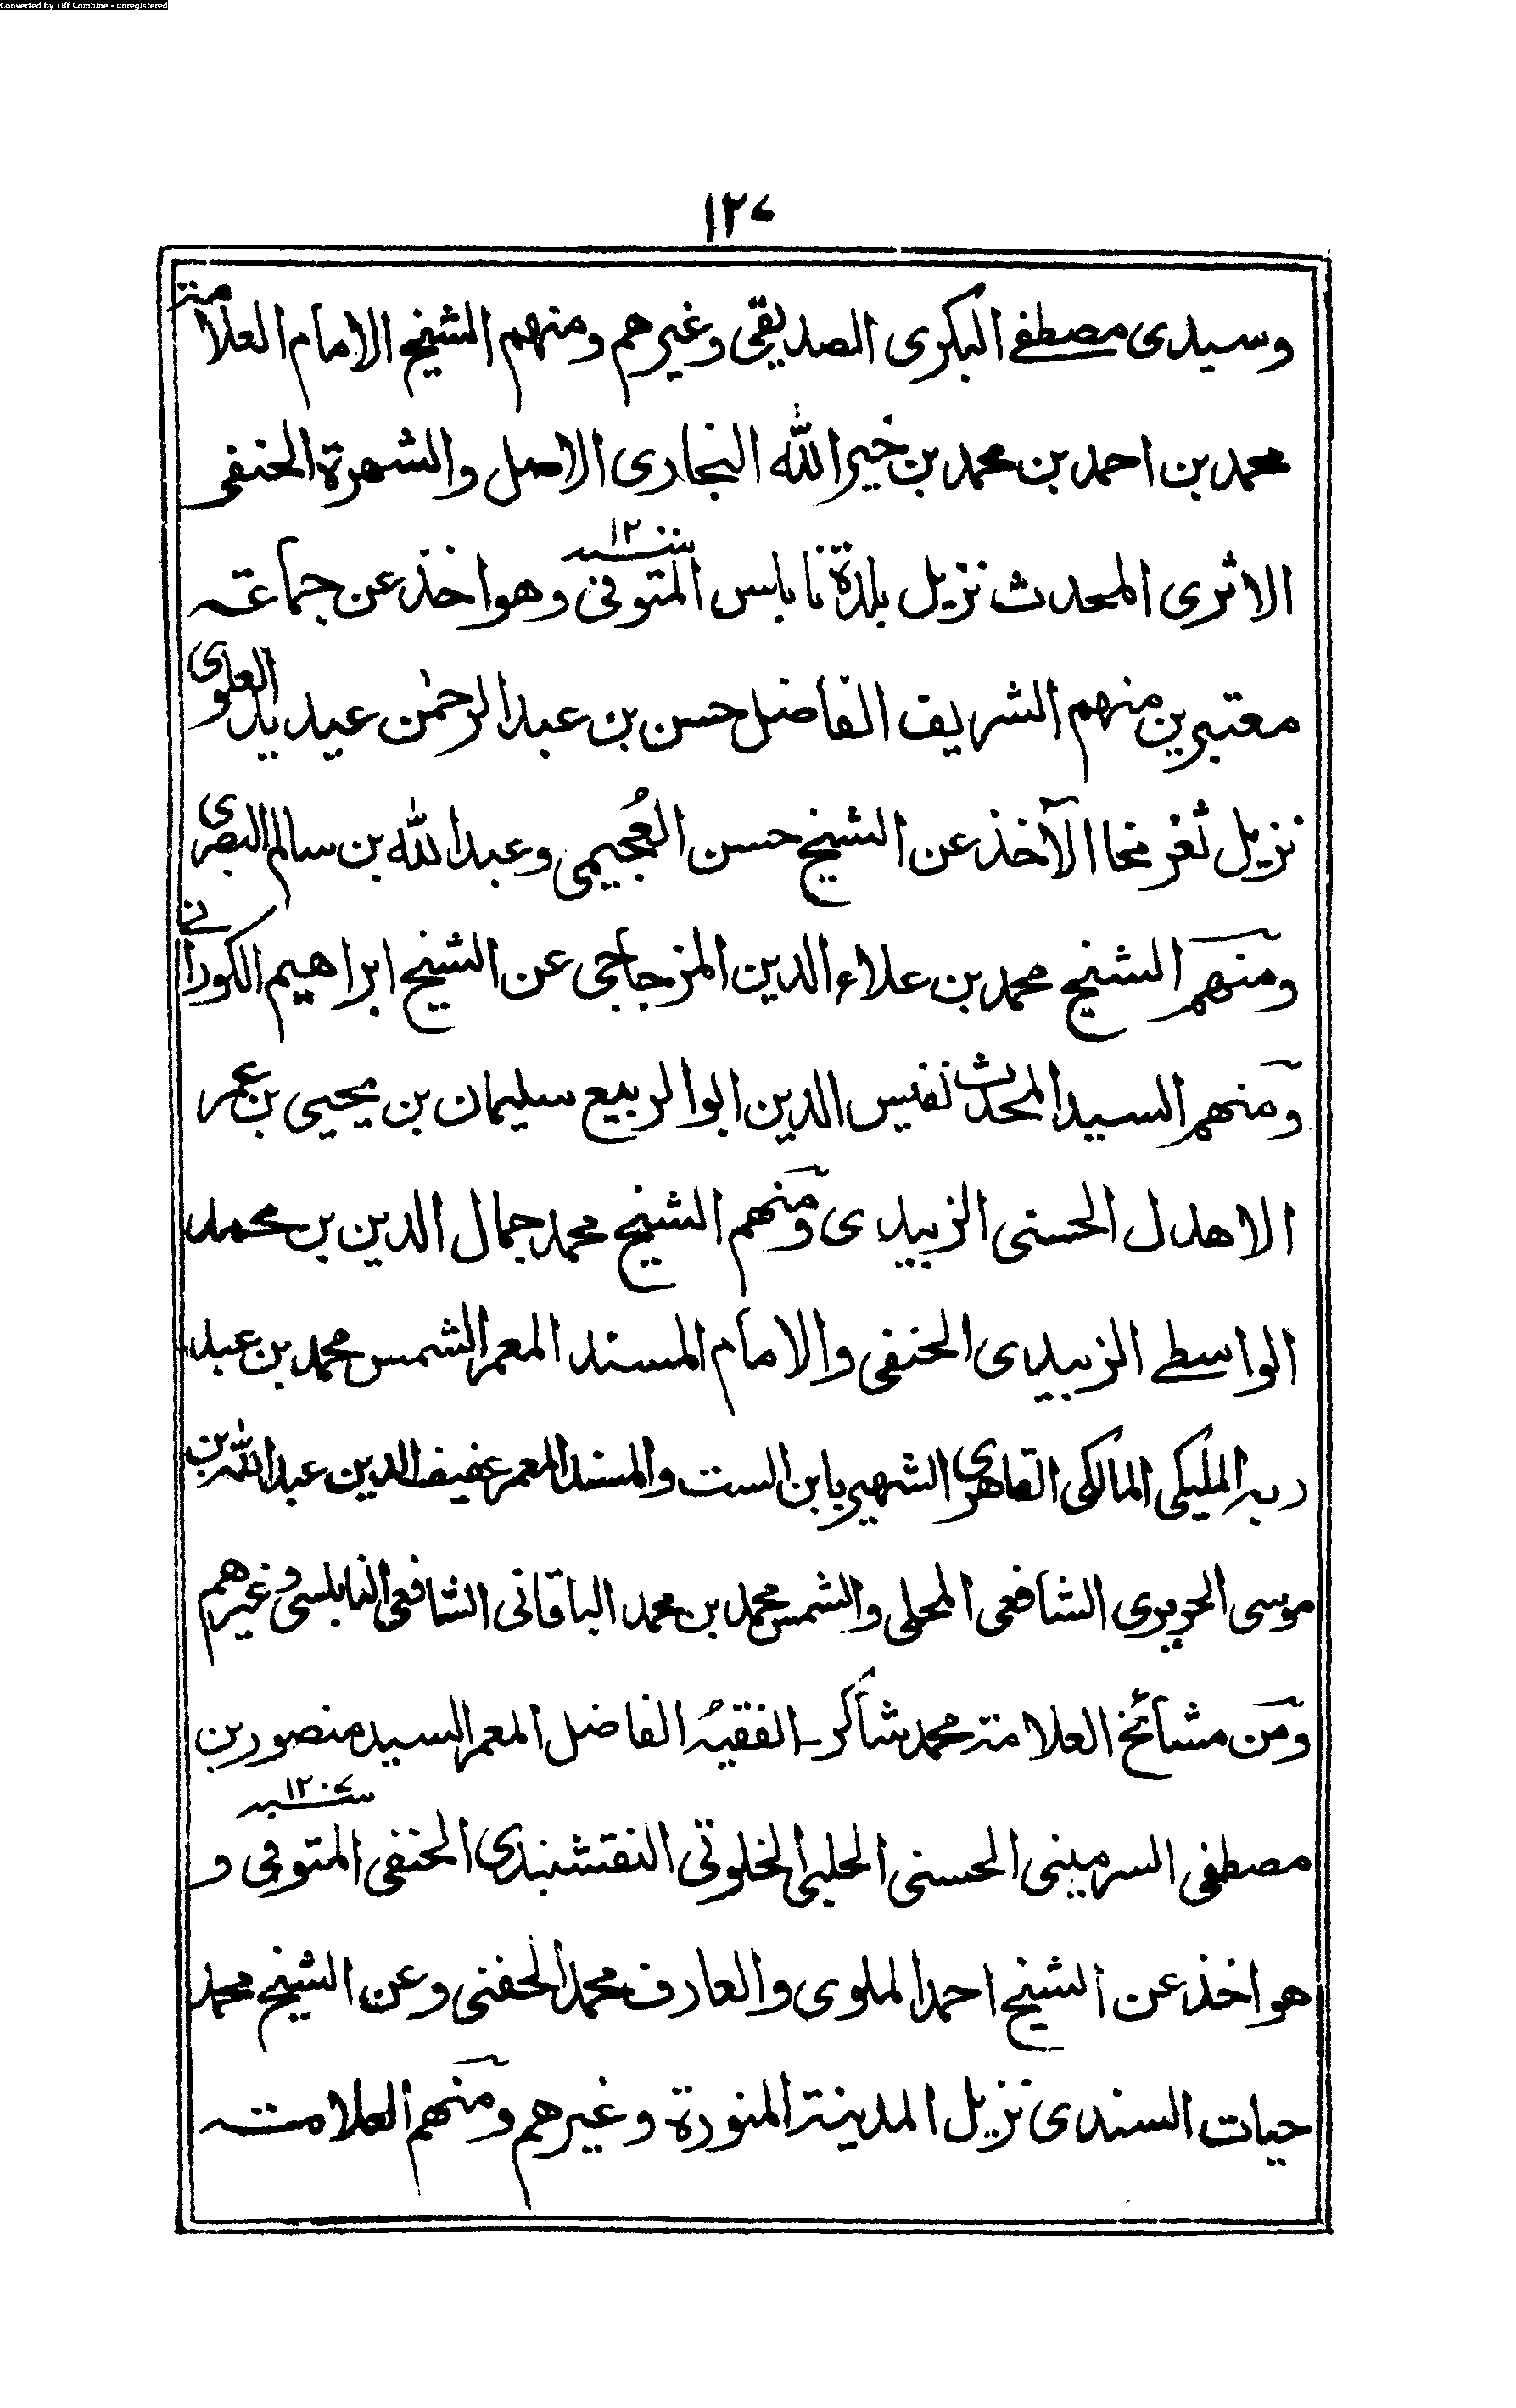 Converted by Tiff Combine - unregistered
١٢٧
وسيدى مصطفے البكرى الصديقى وغيرهم ومنهم الشيخ الامام العلامة
محمد بن احمد بن محمد بن خير الله البخارى الاصل والشهرة الحنفى
الاثرى المحدث نزيل بلدة نابلس المتوفى سنة ١٢٠٠ وهو اخذ عن جماعة
معتبرين منهم الشريف الفاضل حسن بن عبد الرحمٰن عيديد العلوى
نزيل ثغر مخا الآخذ عن الشيخ حسن العُجيمى وعبد الله بن سالم البصرى
ومنهم الشيخ محمد بن علاء الدين المزجاجى عن الشيخ ابراهيم الكورانے
ومنهم السيد المحدث نفيس الدين ابو الربيع سليمان بن يحيى بن عمر
الاهدل الحسنى الزبيدى ومنهم الشيخ محمد جمال الدين بن محمد
الواسطے الزبيدى الحنفى والامام المسند المعمر الشمس محمد بن عبد
ربه المليكى المالكى القاهرى الشهير بابن الست والمسند المعمر عفيف الدين عبد الله بن
موسى الحريرى الشافعى المحلى والشمس محمد بن محمد الباقانى الشافعى النابلسى وغيرهم
ومن مشائخ العلامة محمد شاكر ـ الفقيه الفاضل المعمر السيد منصور بن
مصطفى السرمينى الحسنى الحلبى الخلوتى النقشبندى الحنفى المتوفى سنة ١٢٠٧ و
هو اخذ عن الشيخ احمد الملوى والعارف محمد الحفنى وعن الشيخ محمد
حيات السندى نزيل المدينة المنورة وغيرهم ومنهم العلامة